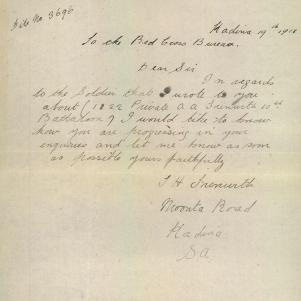 File No 3696
Kadina 19th 1918
To the Red Cross Bureau.
Dear Sir
In regards
to the Soldier that I wrote to you
about (1822 Private A A Trenwith 10th
Battalion) I would like to know
how you are progressing in your
enquiries and let me know as soon
as possible yours faithfully
J H Trenwith
Moonta Road
Kadina
S.A